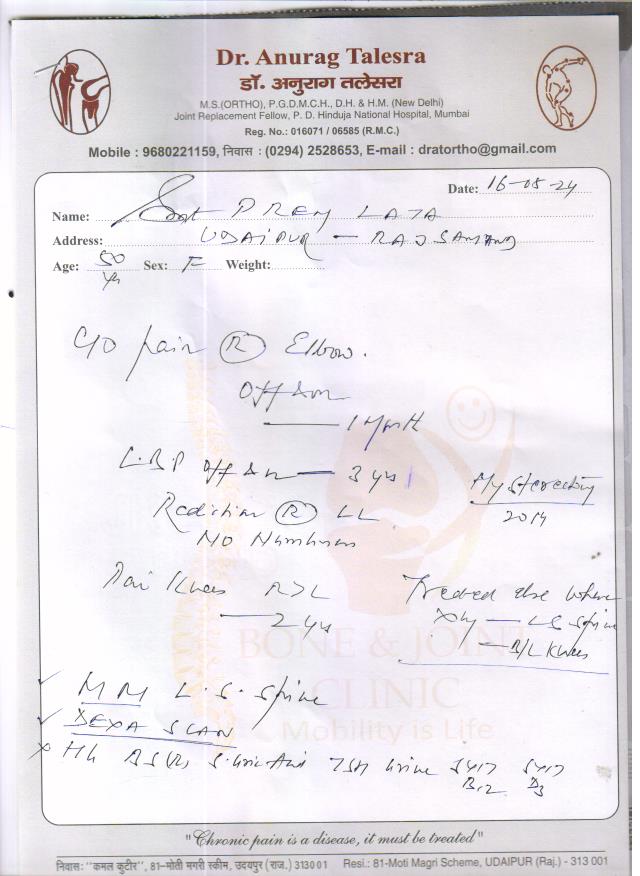 Dr. Anurag Talesra
डॉ. अनुराग तलेसरा
M.S.(ORTHO), P.G.D.M.C.H., D.H. & H.M. (New Delhi)
Joint Replacement Fellow, P. D. Hinduja National Hospital, Mumbai
Reg. No.: 016071 / 06585 (R.M.C.)
Mobile : 9680221159, निवास : (0294) 2528653, E-mail : dratortho@gmail.com
Date: 16-08-24
Name: Smt PREM LATA
Address: UDAIPUR - RAJSAMAND
Age: 50 yrs Sex: F Weight:
C/O pain (R) Elbow.
Off & on
1 Month
L.B.P off & on — 3 yrs
Hysterectomy
2014
Radiation (R) LL
NO Numbness
Pain Knees R>L
— 2 yrs
Treated else where
Xray — LS Spine
— B/L Knees
BONE & JOINT
CLINIC
Mobility is Life
L.S. Spine
DEXA SCAN
Hb BS(R) S.Uric Acid TSH Urine B12 D3
"Chronic pain is a disease, it must be treated"
निवास: "कमल कुटीर", 81-मोती मगरी स्कीम, उदयपुर (राज.) 313001 Resi.: 81-Moti Magri Scheme, UDAIPUR (Raj.) - 313 001